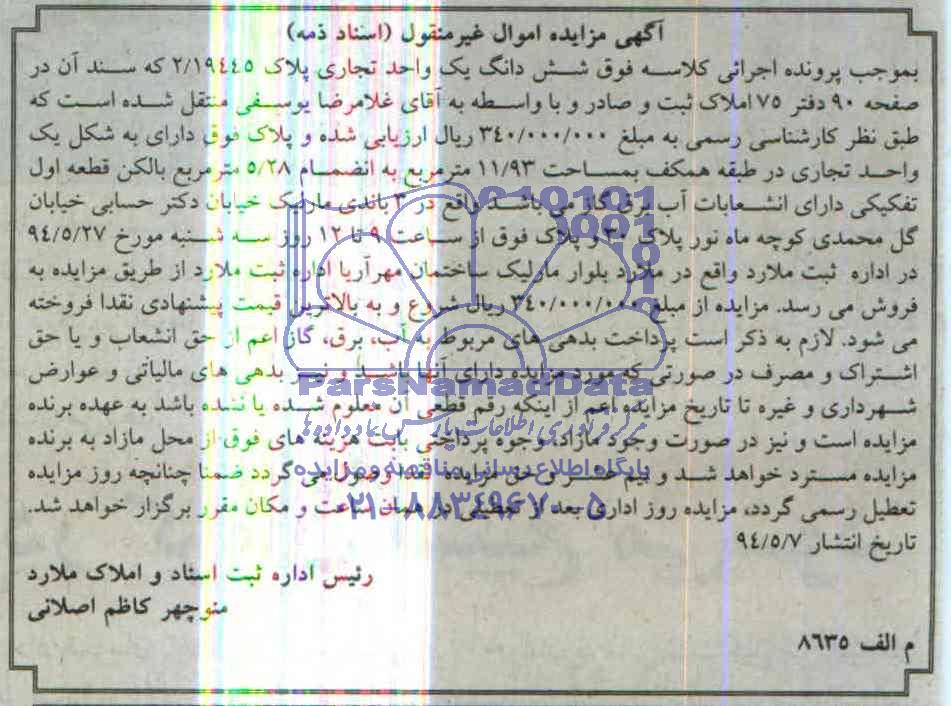 آگهی مزایده اموال غیرمنقول (اسناد ذمه)
بموجب پرونده اجرائی کلاسه فوق شش دانگ یک واحد تجاری پلاک ۲/۱۹٤٤٥ که سند آن در
صفحه ۹۰ دفتر ۷۵ املاک ثبت و صادر و با واسطه به آقای غلامرضا یوسفی منتقل شده است که
طبق نظر کارشناسی رسمی به مبلغ ۳٤۰/۰۰۰/۰۰۰ ریال ارزیابی شده و پلاک فوق دارای به شکل یک
واحد تجاری در طبقه همکف بمساحت ۱۱/۹۳ مترمربع به انضمام ۵/۲۸ مترمربع بالکن قطعه اول
تفکیکی دارای انشعابات آب برق گاز می باشد واقع در ۳ باندی مارلیک خیابان دکتر حسابی خیابان
گل محمدی کوچه ماه نور پلاک ۳۰ و پلاک فوق از ساعت ۹ تا ۱۲ روز سه شنبه مورخ ۹٤/۵/۲۷
در اداره ثبت ملارد واقع در ملارد بلوار مارلیک ساختمان مهرآریا اداره ثبت ملارد از طریق مزایده به
فروش می رسد. مزایده از مبلغ ۳٤۰/۰۰۰/۰۰۰ ریال شروع و به بالاترین قیمت پیشنهادی نقدا فروخته
می شود. لازم به ذکر است پرداخت بدهی های مربوط به آب، برق، گاز اعم از حق انشعاب و یا حق
اشتراک و مصرف در صورتی که مورد مزایده دارای آنها باشد و نیز بدهی های مالیاتی و عوارض
شهرداری و غیره تا تاریخ مزایده اعم از اینکه رقم قطعی آن معلوم شده یا نشده باشد به عهده برنده
مزایده است و نیز در صورت وجود مازاد وجوه پرداختی بابت هزینه های فوق از محل مازاد به برنده
مزایده مسترد خواهد شد و نیم عشر و حق مزایده نقدا وصول می گردد ضمنا چنانچه روز مزایده
تعطیل رسمی گردد، مزایده روز اداری بعد از تعطیلی در همان ساعت و مکان مقرر برگزار خواهد شد.
تاریخ انتشار ۹٤/۵/۷
رئیس اداره ثبت اسناد و املاک ملارد
منوچهر کاظم اصلانی
م الف ۸٦۳۵
ParsNamadData
پایگاه اطلاع رسانی مناقصه و مزایده
۰۲۱-۸۸۳٤۹٦۷۰-۵